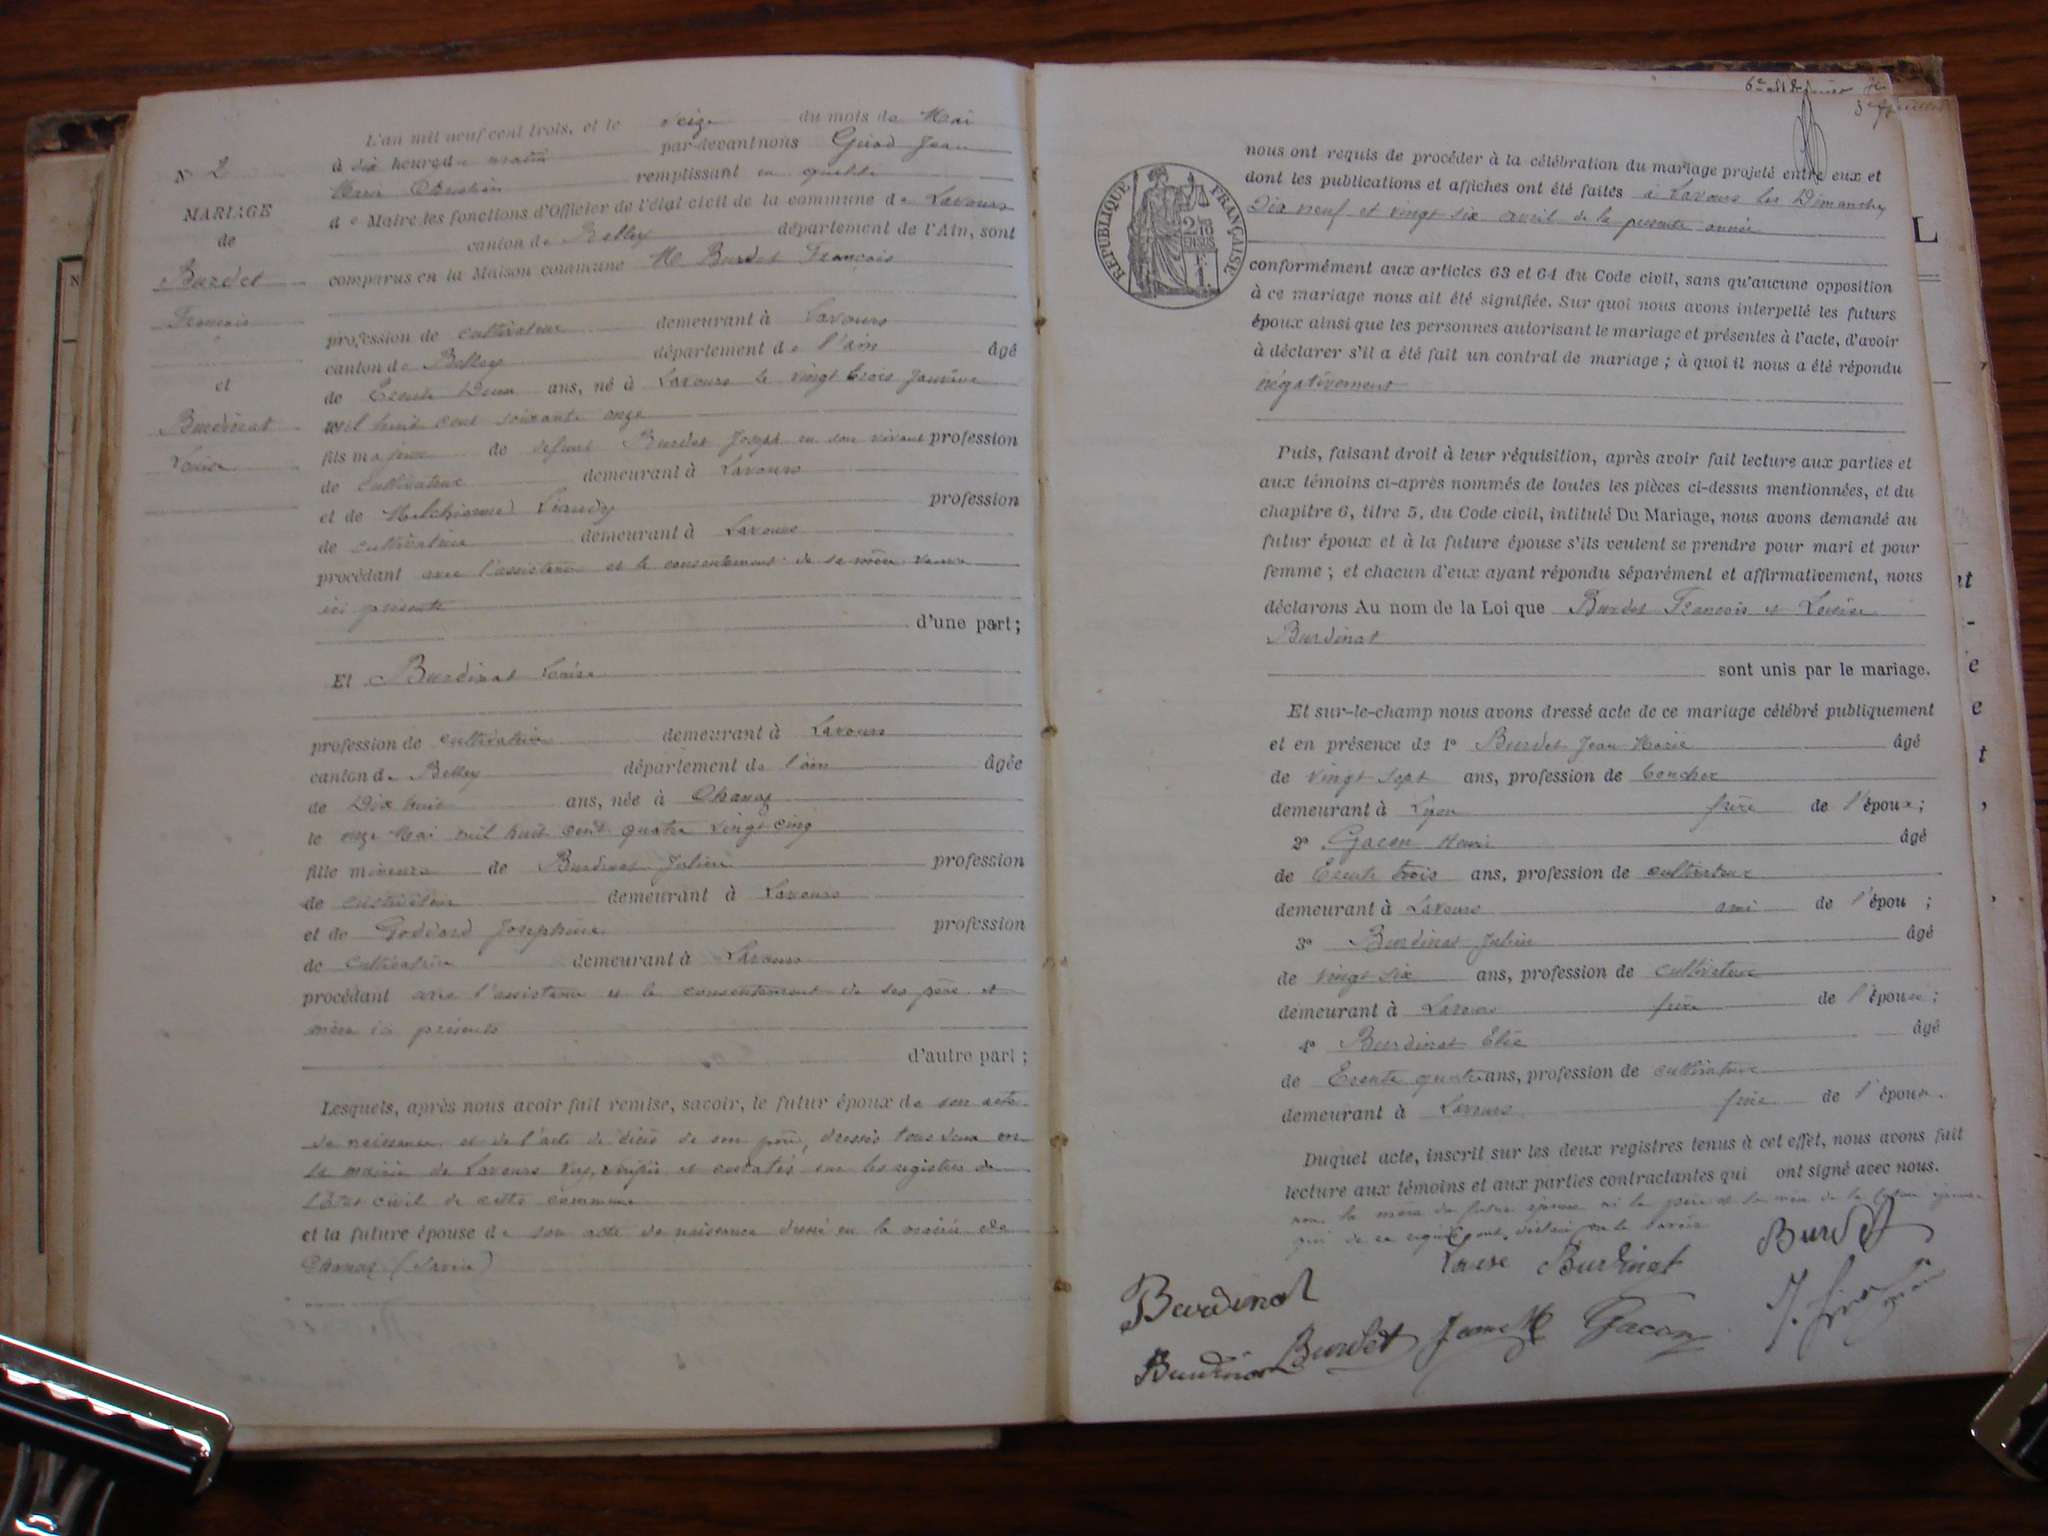 N° 2
MARIAGE
de
Burdet
François
et
Burdinat
Louise
L'an mil neuf cent trois, et le seize du mois de Mai
à six heures du matin par-devant nous Girod Jean
Marie remplissant en qualité
de Maire les fonctions d'Officier de l'état civil de la commune de Lavours
canton de Belley département de l'Ain, sont
comparus en la Maison commune M Burdet François
profession de cultivateur demeurant à Lavours
canton de Belley département de l'ain âgé
de Trente Deux ans, né à Lavours le vingt trois Janvier
mil huit cent soixante onze
fils majeur de défunt Burdet Joseph en son vivant profession
de cultivateur demeurant à Lavours
et de profession
de cultivatrice demeurant à Lavours
procédant avec l'assistance et le consentement de sa mère veuve
ici présente
d'une part;
Et Burdinat Louise
profession de cultivatrice demeurant à Lavours
canton de Belley département de l'ain âgée
de Dix huit ans, née à Chanaz
le onze Mai mil huit cent quatre vingt cinq
fille mineure de Burdinat Julien profession
de cultivateur demeurant à Lavours
et de Goddard Josephine profession
de cultivatrice demeurant à Lavours
procédant avec l'assistance et le consentement de ses père et
mère ici présents
d'autre part;
Lesquels, après nous avoir fait remise, savoir, le futur époux de son acte
de naissance et de l'acte de décès de son père, dressés tous deux en
la mairie de Lavours sur les registres de
l'état civil de cette commune
et la future épouse de son acte de naissance dressé en la mairie de
Chanaz (Savoie)
REPUBLIQUE FRANÇAISE
2/10 EN SUS
1 F
nous ont requis de procéder à la célébration du mariage projeté entre eux et
dont les publications et affiches ont été faites à Lavours les Dimanches
Dix neuf et vingt six avril de la présente année
conformément aux articles 63 et 64 du Code civil, sans qu'aucune opposition
à ce mariage nous ait été signifiée. Sur quoi nous avons interpellé les futurs
époux ainsi que les personnes autorisant le mariage et présentes à l'acte, d'avoir
à déclarer s'il a été fait un contrat de mariage; à quoi il nous a été répondu
négativement
Puis, faisant droit à leur réquisition, après avoir fait lecture aux parties et
aux témoins ci-après nommés de toutes les pièces ci-dessus mentionnées, et du
chapitre 6, titre 5, du Code civil, intitulé Du Mariage, nous avons demandé au
futur époux et à la future épouse s'ils veulent se prendre pour mari et pour
femme; et chacun d'eux ayant répondu séparément et affirmativement, nous
déclarons Au nom de la Loi que Burdet François et Louise
Burdinat
sont unis par le mariage.
Et sur-le-champ nous avons dressé acte de ce mariage célébré publiquement
et en présence de 1° Burdet Jean Marie âgé
de vingt sept ans, profession de
demeurant à Lyon frère de l'époux;
2° Gacon Henri âgé
de Trente trois ans, profession de cultivateur
demeurant à Lavours ami de l'épou ;
3° Burdinat Julien âgé
de vingt six ans, profession de cultivateur
demeurant à Lavours frère de l'épouse;
4° Burdinat Elie âgé
de Trente quatre ans, profession de cultivateur
demeurant à Lavours frère de l'épouse.
Duquel acte, inscrit sur les deux registres tenus à cet effet, nous avons fait
lecture aux témoins et aux parties contractantes qui ont signé avec nous.
Louise Burdinat Burdet
Burdinat
Burdinat Burdet Jean M Gacon J. Girod